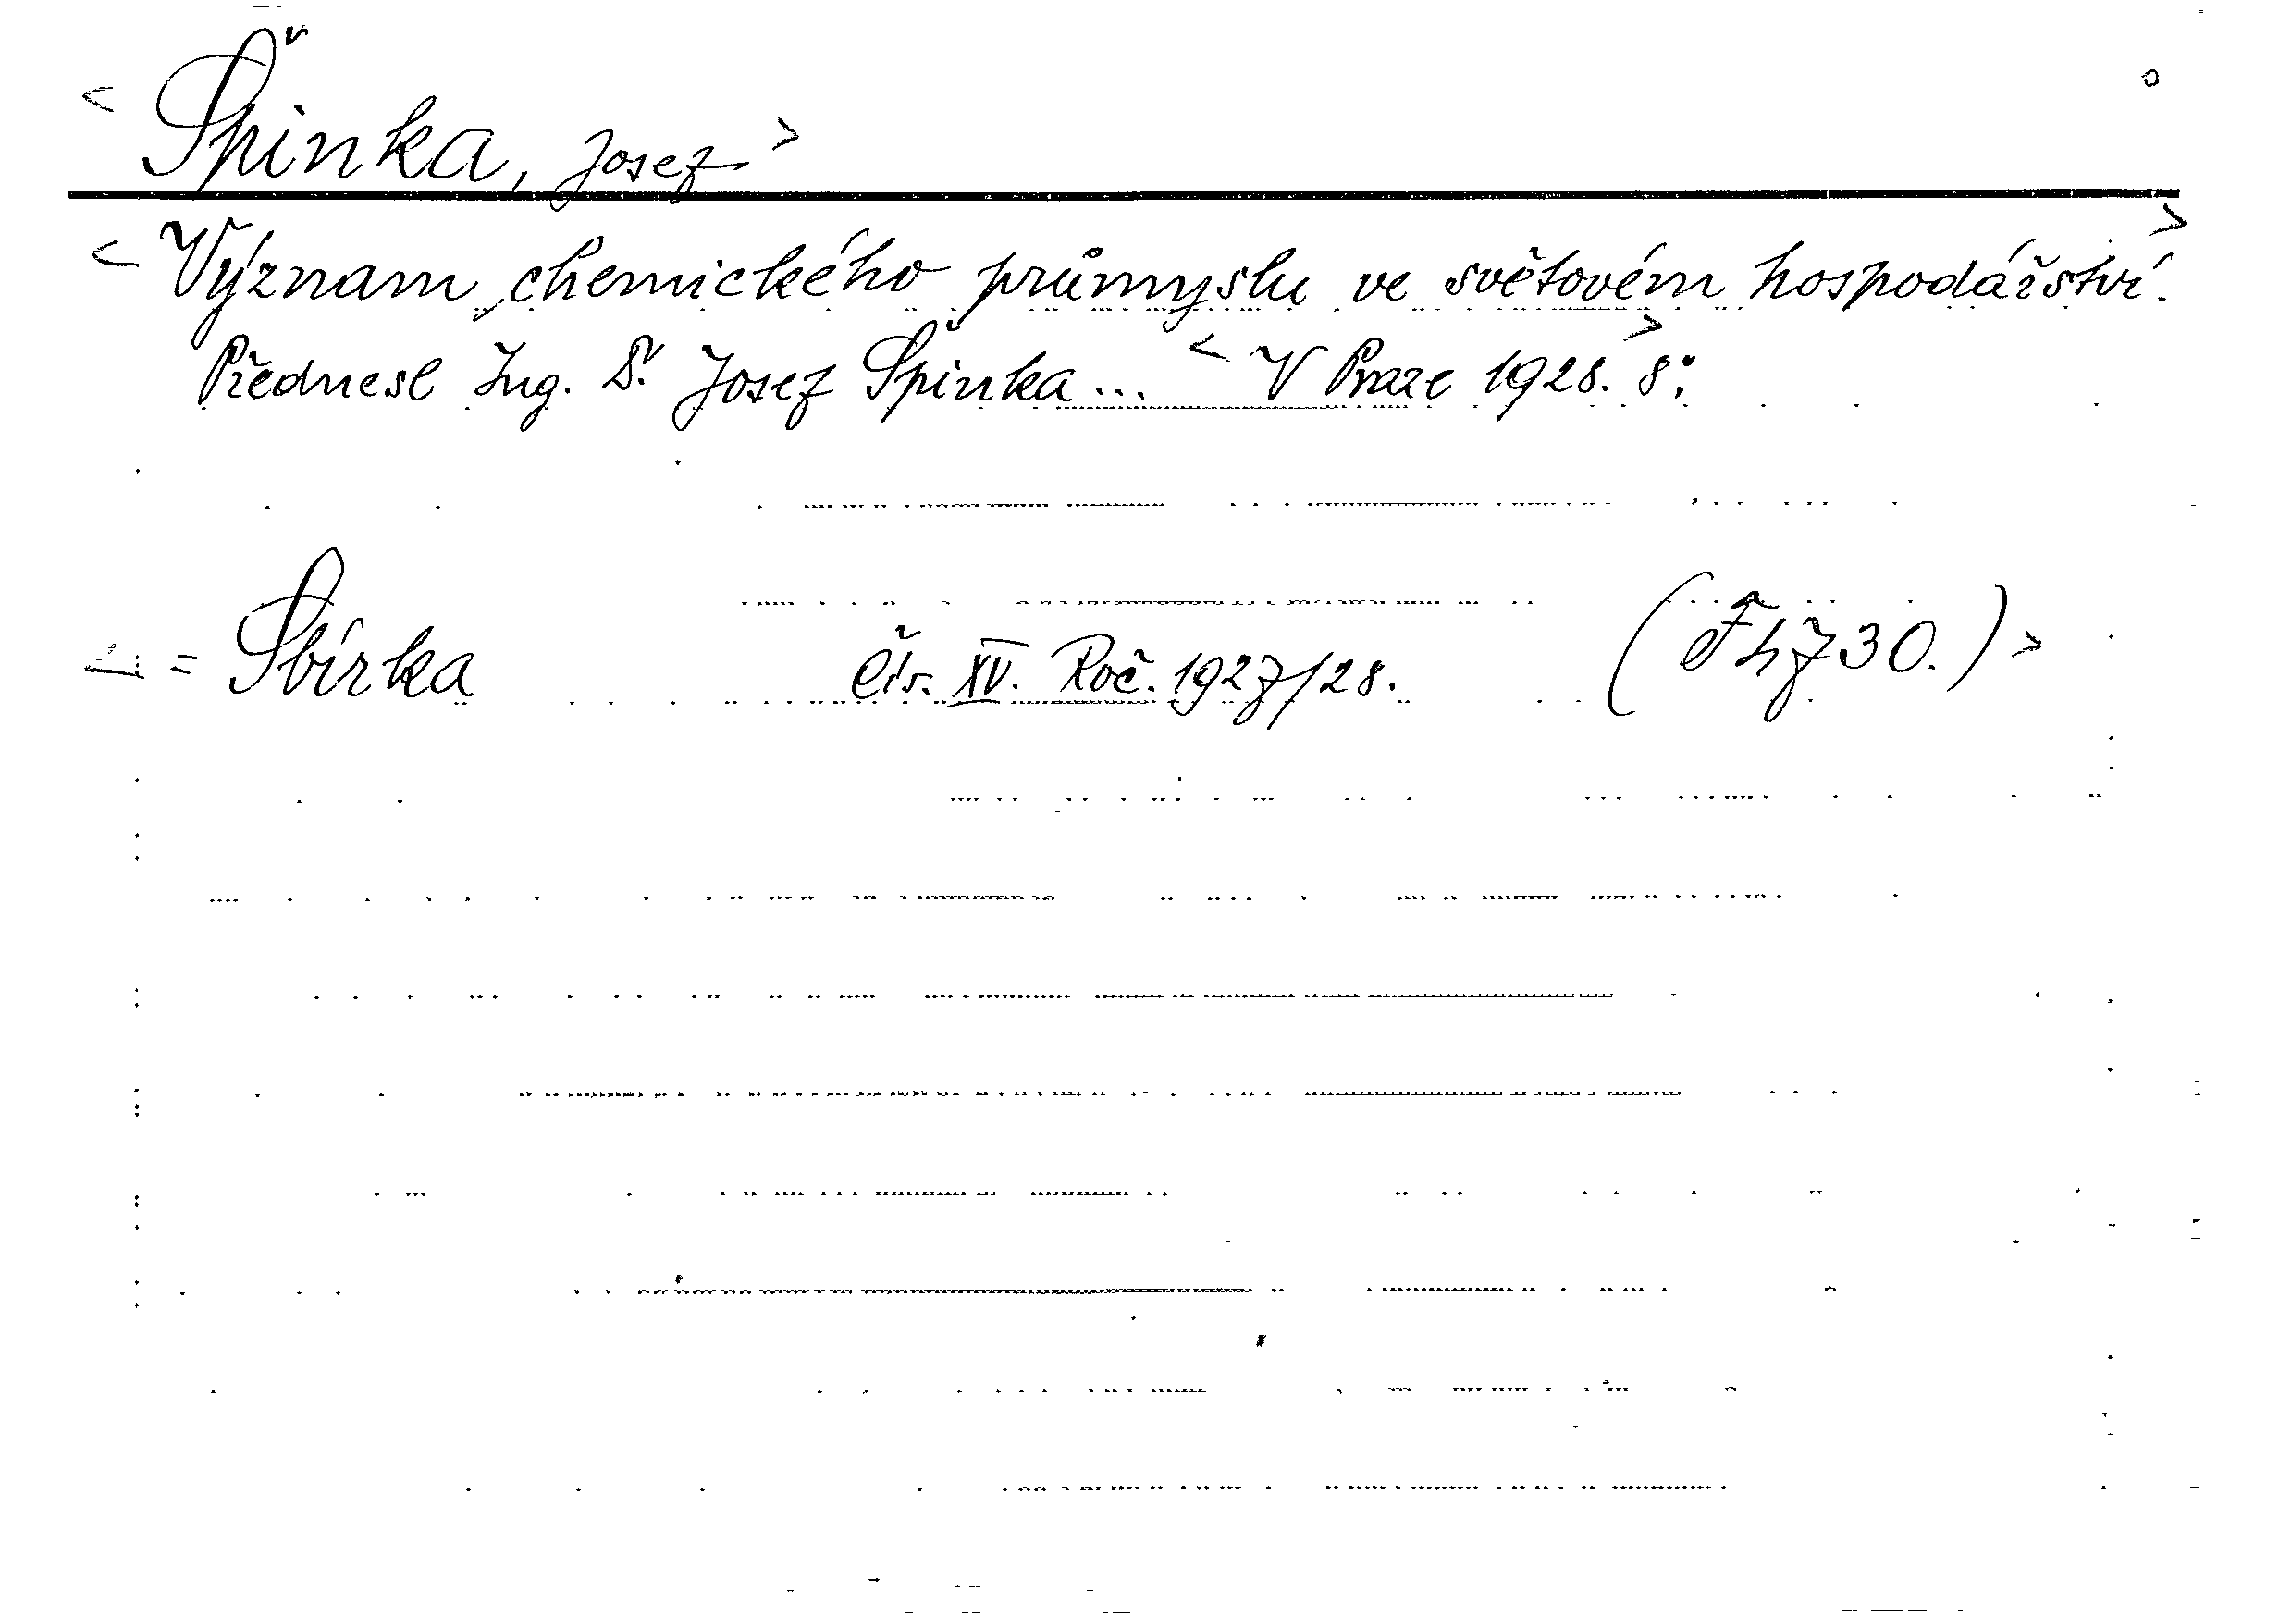 < Špinka, Josef >
< Význam chemického průmyslu ve světovém hospodářství. >
Přednesl Ing. Dr. Josef Špinka ... < V Praze 1928. > 8°.
= Sbírka Čís. XV. Roč. 1927/28. ( 30.) >